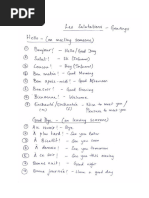 Les Salutations - Greetings
Hello - (on meeting someone)
① Bonjour! - Hello/Good Day
② Salut! - Hi (Informal)
③ Coucou! - Hey (Informal)
④ Bon matin! - Good Morning
⑤ Bon après-midi! - Good Afternoon
⑥ Bonsoir! - Good Evening
⑦ Bonne nuit! - Good Night
⑧ Bienvenue! - Welcome
⑨ Enchanté/Enchantée! - Nice to meet you/
Good Bye - (on leaving someone)
① Au revoir! - Bye
② À plus! - See you
③ À plus tard! - See you later
④ À bientôt! - See you soon
⑤ À demain! - See you tomorrow